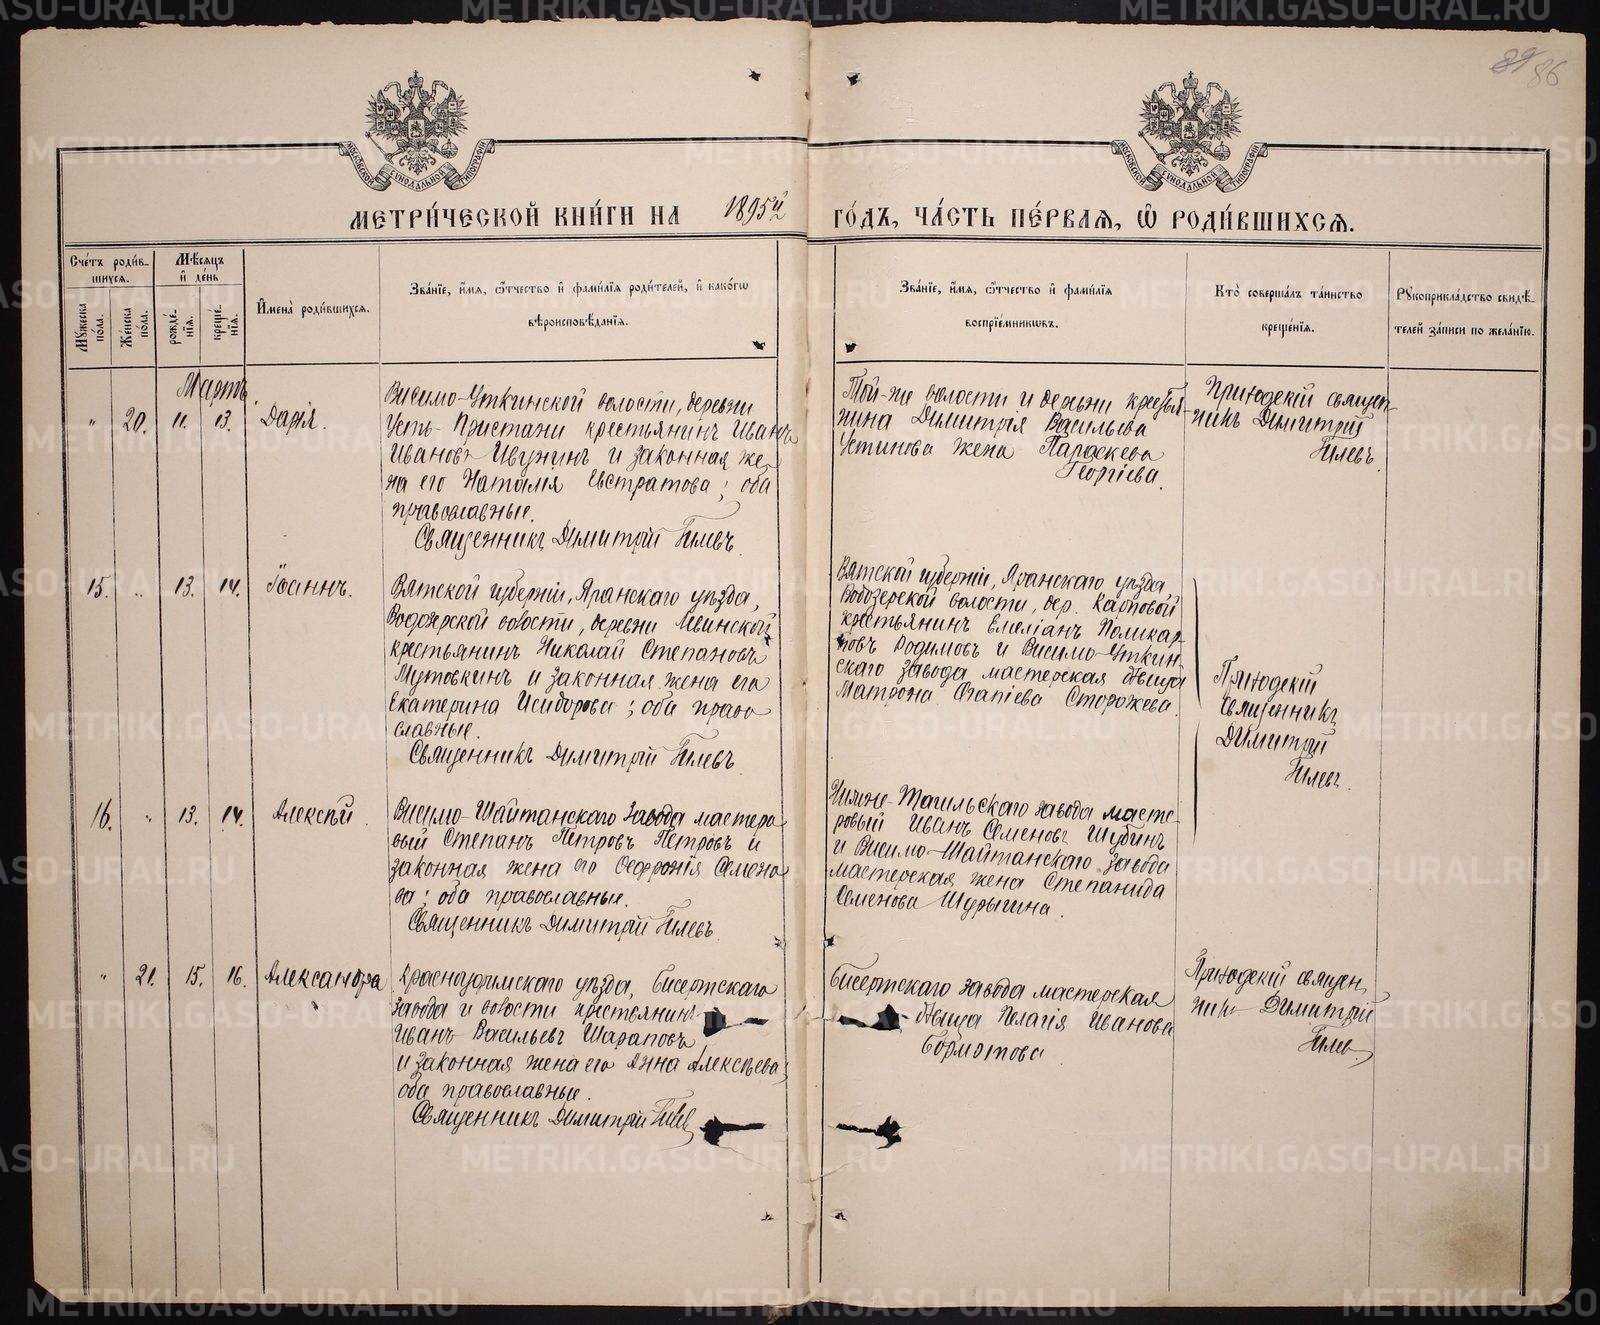 89 86
МОСКОВСКОЙ СѴНОДАЛЬНОЙ ТИПОГРАФІИ
МОСКОВСКОЙ СѴНОДАЛЬНОЙ ТИПОГРАФІИ
МЕТРИ́ЧЕСКОЙ КНИ́ГИ НА 1895й ГО́ДЪ, ЧА́СТЬ ПЕ́РВАѦ, Ѡ РОДИ́ВШИХСѦ.
Сче́тъ роди́в-
шихсѧ.
Мꙋ́жеска по́ла.
Же́нска по́ла.
Мѣ́сѧцъ
и҆ де́нь
рожде́-
нїѧ.
креще́-
нїѧ.
И҆мена̀ роди́вшихсѧ.
Зва́нїе, и҆́мѧ, ѻ҆́тчество и҆ фами́лїѧ роди́телей, и҆ како́гѡ
вѣроисповѣ́данїѧ.
Зва́нїе, и҆́мѧ, ѻ҆́тчество и҆ фами́лїѧ
воспрїе́мникѡвъ.
Кто̀ соверша́лъ та́инство
креще́нїѧ.
Рꙋкоприкла́дство свидѣ́-
телей за́писи по жела́нїю.
Мартъ.
" 20. 11. 13. Дарія.
Висимо-Уткинской волости, деревни
Усть-Пристани крестьянинъ Иванъ
Ивановъ Ивунинъ и законная же-
на его Наталія Евстратова; оба
православные.
Священникъ Димитрій Гилевъ
Той-же волости и деревни крестья-
нина Димитрія Васильева
Устинова жена Параскева
Георгіева.
Приходскій священ-
никъ Димитрій
Гилевъ.
15. " 13. 14. Іоаннъ.
Вятской губерніи, Яранскаго уѣзда,
Водозерской волости, деревни Левинской
крестьянинъ Николай Степановъ
Мутовкинъ и законная жена его
Екатерина Исидорова; оба право-
славные.
Священникъ Димитрій Гилевъ
Вятской губерніи, Яранскаго уѣзда
Водозерской волости, дер. Карповой
крестьянинъ Емеліанъ Поликар-
повъ Родимовъ и Висимо-Уткин-
скаго завода мастерская дѣвица
Матрона Агапіева Сторожева.
Приходскій
священникъ
Димитрій
Гилевъ.
16. " 13. 14. Алексѣй.
Висимо-Шайтанскаго завода мастеро-
вый Степанъ Петровъ Петровъ и
законная жена его Семено-
ва; оба православные.
Священникъ Димитрій Гилевъ
Нижне-Тагильскаго завода масте-
ровый Иванъ Семеновъ Шубинъ
и Висимо-Шайтанскаго завода
мастерская жена Степанида
Семенова Шурыгина.
" 21. 15. 16. Александра
Красноуфимскаго уѣзда, Бисертскаго
завода и волости крестьянинъ
Иванъ Васильевъ Шараповъ
и законная жена его Анна Алексѣева;
оба православные.
Священникъ Димитрій Гилевъ
Бисертскаго завода мастерская
дѣвица Пелагія Иванова
Бормотова
Приходскій священ-
никъ Димитрій
Гилев
METRIKI.GASO-URAL.RU